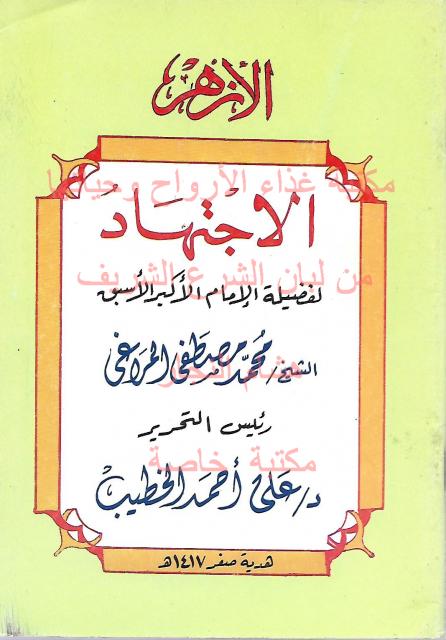 الأزهر
مكتبة غذاء الأرواح وحياتها
الاجتهاد
من لبان الشرع الشريف
لفضيلة الإمام الأكبر الأسبق
الشيخ/ محمد مصطفى المراغى
هشام النجار
رئيس التحرير
مكتبة خاصة
د/ على أحمد الخطيب
هدية صفر ١٤١٧هـ